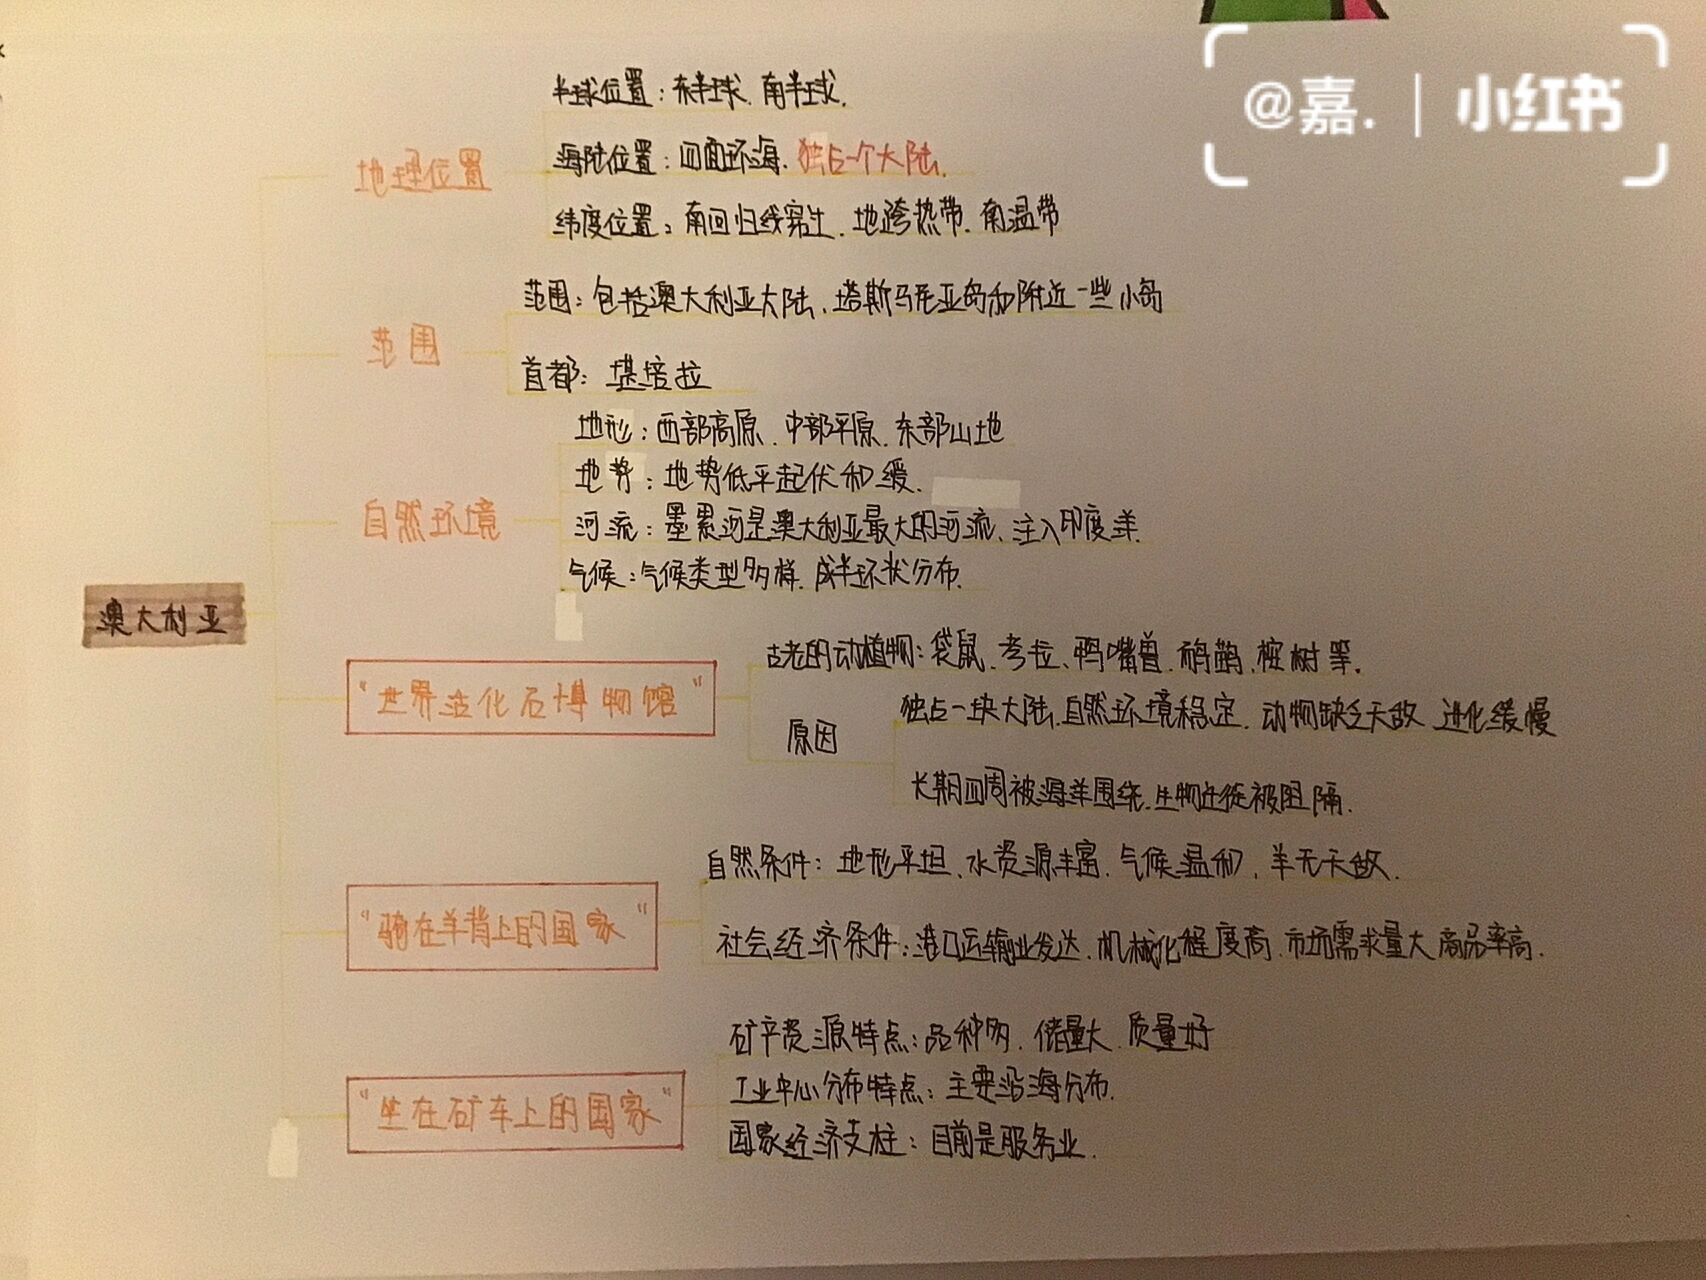 @嘉. 小红书
半球位置：东半球、南半球.
地理位置
海陆位置：四面环海、独占一个大陆.
纬度位置：南回归线穿过、地跨热带、南温带
范围：包括澳大利亚大陆、塔斯马尼亚岛和附近一些小岛
范围
首都：堪培拉
地形：西部高原、中部平原、东部山地
地势：地势低平起伏和缓.
自然环境
河流：墨累河是澳大利亚最大的河流、注入印度洋.
气候：气候类型多样、成半环状分布.
澳大利亚
古老的动植物：袋鼠、考拉、鸭嘴兽、鸸鹋、桉树等.
"世界活化石博物馆"
独占一块大陆、自然环境稳定、动物缺乏天敌、进化缓慢
原因
长期四周被海洋围绕、生物迁徙被阻隔.
自然条件：地形平坦、水资源丰富、气候温和、羊无天敌.
"骑在羊背上的国家"
社会经济条件：港口运输业发达、机械化程度高、市场需求量大 商品率高.
矿产资源特点：品种多、储量大、质量好
工业中心分布特点：主要沿海分布.
"坐在矿车上的国家"
国家经济支柱：目前是服务业.